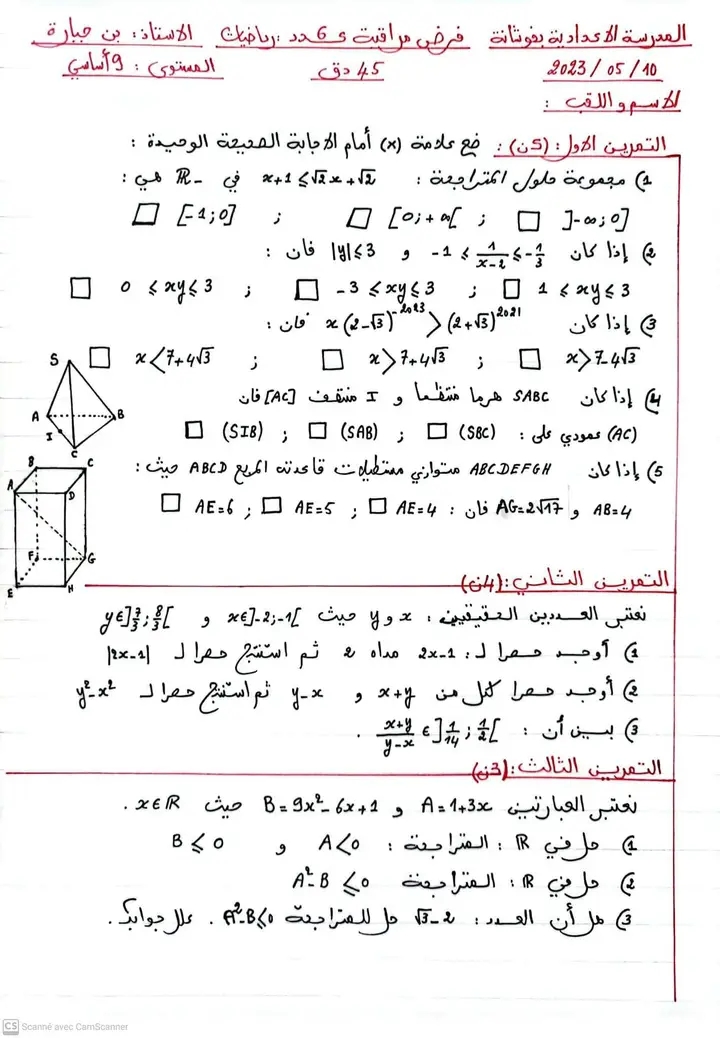 المدرسة الاعدادية بفوشانة فرض مراقبة ع6دد : رياضيات الاستاذ : بن جبارة
2023 / 05 / 10 45 دق المستوى : 9 أساسي
الاسم و اللقب :
التمرين الاول : (5ن) : ضع علامة (x) أمام الاجابة الصحيحة الوحيدة :
1) مجموعة حلول المتراجحة : x+1 ≤ √2x+√2 في ℝ₋ هي :
☐ [-1;0] ; ☐ [0;+∞[ ; ☐ ]-∞;0]
2) إذا كان -1 ≤ 1/(x-2) ≤ -1/3 و |y| ≤ 3 فان :
☐ 0 ≤ xy ≤ 3 ; ☐ -3 ≤ xy ≤ 3 ; ☐ 1 ≤ xy ≤ 3
3) إذا كان x(2-√3)⁻²⁰²³ > (2+√3)²⁰²¹ فان :
☐ x < 7+4√3 ; ☐ x > 7+4√3 ; ☐ x > 7-4√3
4) إذا كان SABC هرما منتظما و I منتصف [AC] فان
(AC) عمودي على : ☐ (SBC) ; ☐ (SAB) ; ☐ (SIB)
S
A
B
I
C
5) إذا كان ABCDEFGH متوازي مستطيلات قاعدته المربع ABCD حيث :
AB=4 و AG=2√17 فان : ☐ AE=4 ; ☐ AE=5 ; ☐ AE=6
B
C
A
D
F
G
E
H
التمرين الثاني : (4ن)
نعتبر العددين الحقيقيين : x و y حيث x∈]-2;-1[ و y∈]7/3;8/3[
1) أوجد حصرا لـ : 2x-1 مداه 2 ثم استنتج حصرا لـ |2x-1|
2) أوجد حصرا لكل من x+y و y-x ثم استنتج حصرا لـ y²-x²
3) بين أن : (x+y)/(y-x) ∈ ]1/14;1/2[ .
التمرين الثالث : (3ن)
نعتبر العبارتين A=1+3x و B=9x²-6x+1 حيث x∈ℝ .
1) حل في ℝ : المتراجحة : A<0 و B ≤ 0
2) حل في ℝ : المتراجحة A²-B ≤ 0
3) هل أن العدد : √3-2 حل للمتراجحة A²-B≤0 . علل جوابك .
CS Scanné avec CamScanner